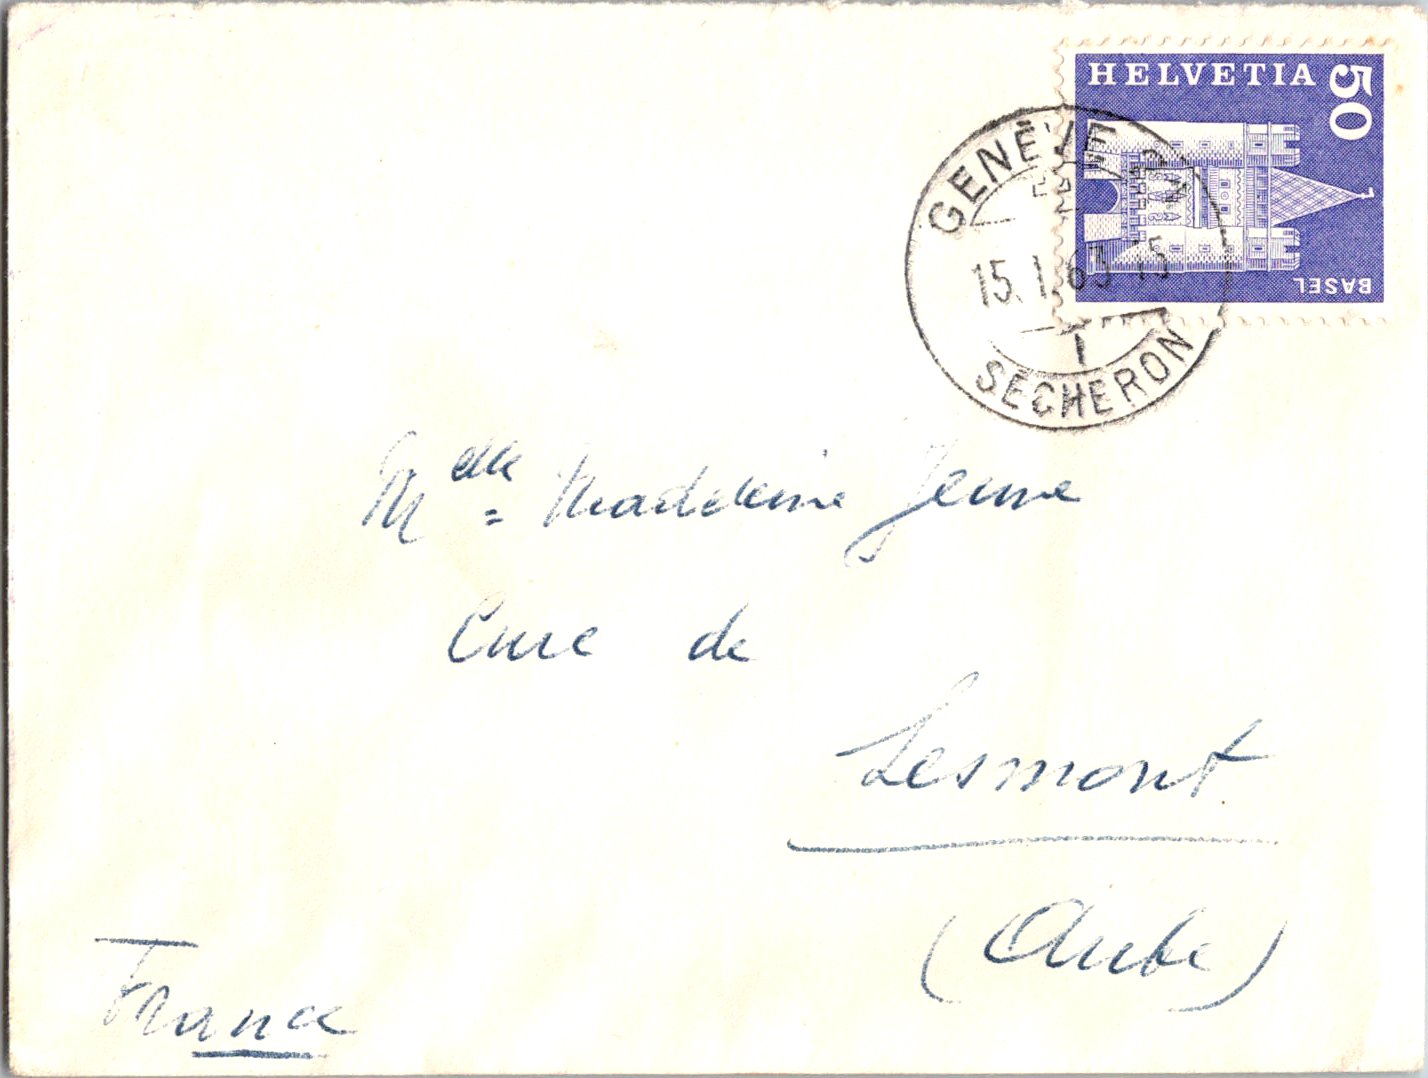 HELVETIA 50
BASEL
GENÈVE
15.1.63 15
1
SÉCHERON
Melle Madeleine Jeune
Cure de
Lesmont
(Aube)
France